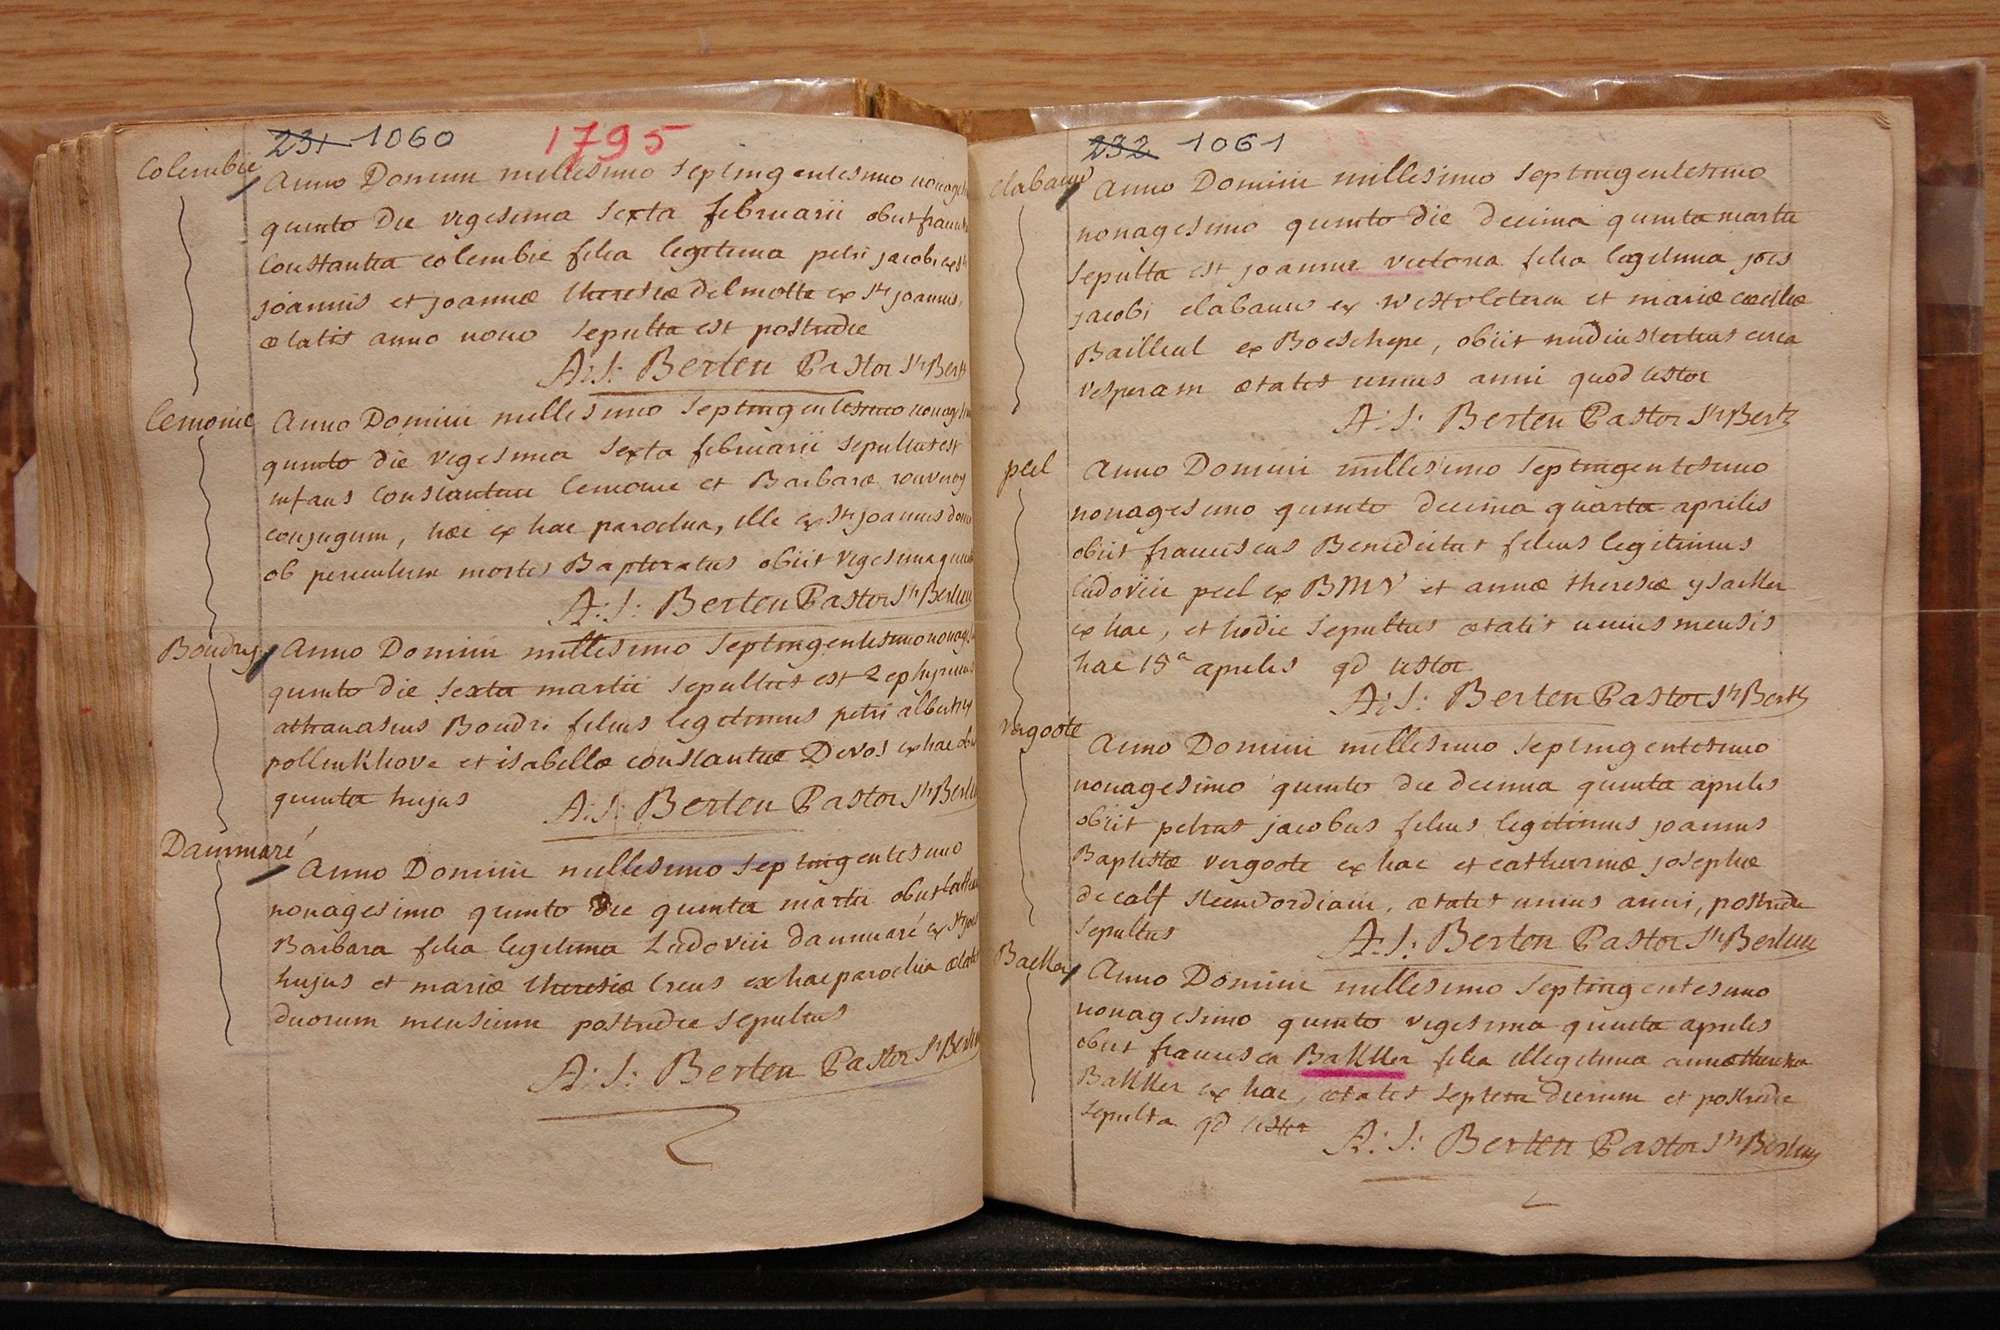 231 1060 1795
Colembie Anno Domini millesimo septingentesimo
quinto die vigesima sexta februarii obiit
Constantia colembie filia legitima petri jacobi
joannis et joannæ theresiæ delmotte ex Sti joannis
ætatis anno nono sepulta est postridie
A: J: Berten Pastor Sti
Lemoine Anno Domini millesimo septingentesimo
quinto die vigesima sexta februarii sepultus est
infans Constantini Lemoine et Barbaræ
conjugum, hæc ex hac parochia, ille ex Sti joannis
ob periculum mortis Baptizatus obiit vigesima
A: J: Berten Pastor Sti
Boudry Anno Domini millesimo septingentesimo
quinto die sexta martii sepultus est Zephyrinus
athanasius Boudri filius legitimus petri alberti
pollinkhove et isabellæ constantiæ Devos ex hac
quinta hujus
A: J: Berten Pastor Sti
Dammaré Anno Domini millesimo septingentesimo
nonagesimo quinto die quinta martii obiit
Barbara filia legitima Ludovici dammaré ex
hujus et mariæ theresiæ Creus ex hac parochia
duorum mensium postridie sepultus
A: J: Berten Pastor Sti
232 1061
Anno Domini millesimo septingentesimo
nonagesimo quinto die decima quinta martii
sepulta est joanna victoria filia legitima jois
jacobi clabauw ex westvleteren et mariæ cæciliæ
Bailleul ex Boeschepe, obiit nudiustertius circa
vesperam ætatis unius anni quod testor
A: J: Berten Pastor Sti Berti
peel Anno Domini millesimo septingentesimo
nonagesimo quinto decima quarta aprilis
obiit franciscus Benedictus filius legitimus
Ludovici peel ex BMV et annæ theresiæ ysacker
ex hac, et hodie sepultus ætatis unius mensis
hac 15a aprilis qd testor
A: J: Berten Pastor Sti Berti
vergoote Anno Domini millesimo septingentesimo
nonagesimo quinto die decima quinta aprilis
obiit petrus jacobus filius legitimus joannis
Baptistæ vergoote ex hac et catharinæ josephæ
decalf steenvordiani, ætatis unius anni, postridie
sepultus
A: J: Berten Pastor Sti
Anno Domini millesimo septingentesimo
nonagesimo quinto vigesima quinta aprilis
obiit francisca Bakker filia illegitima
Bakker ex hac, ætatis septem dierum et postridie
sepulta qd testor
A: J: Berten Pastor Sti